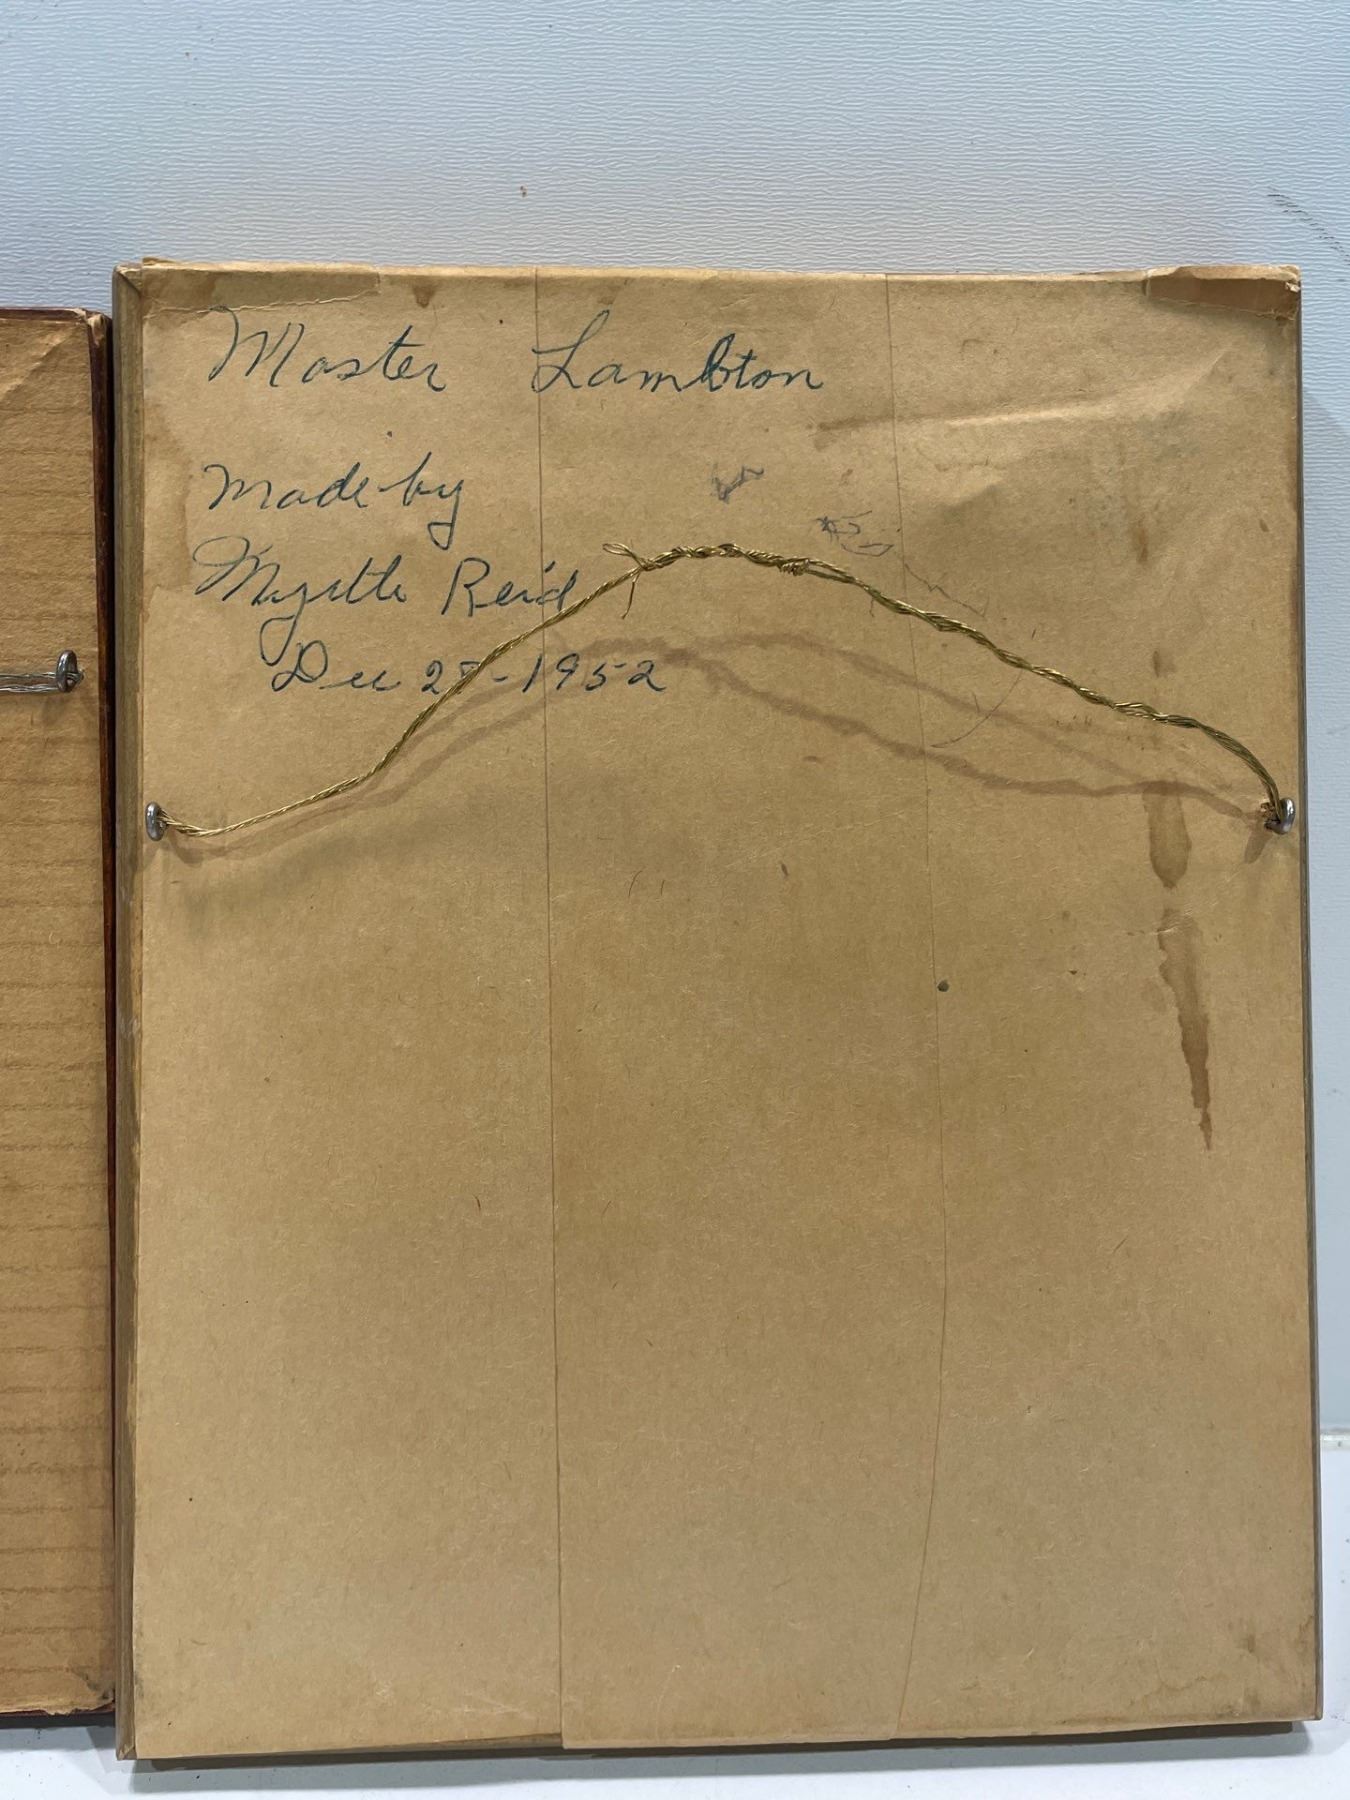 Master Lambton
Made by
Myrtle Reid
Dec - 1952